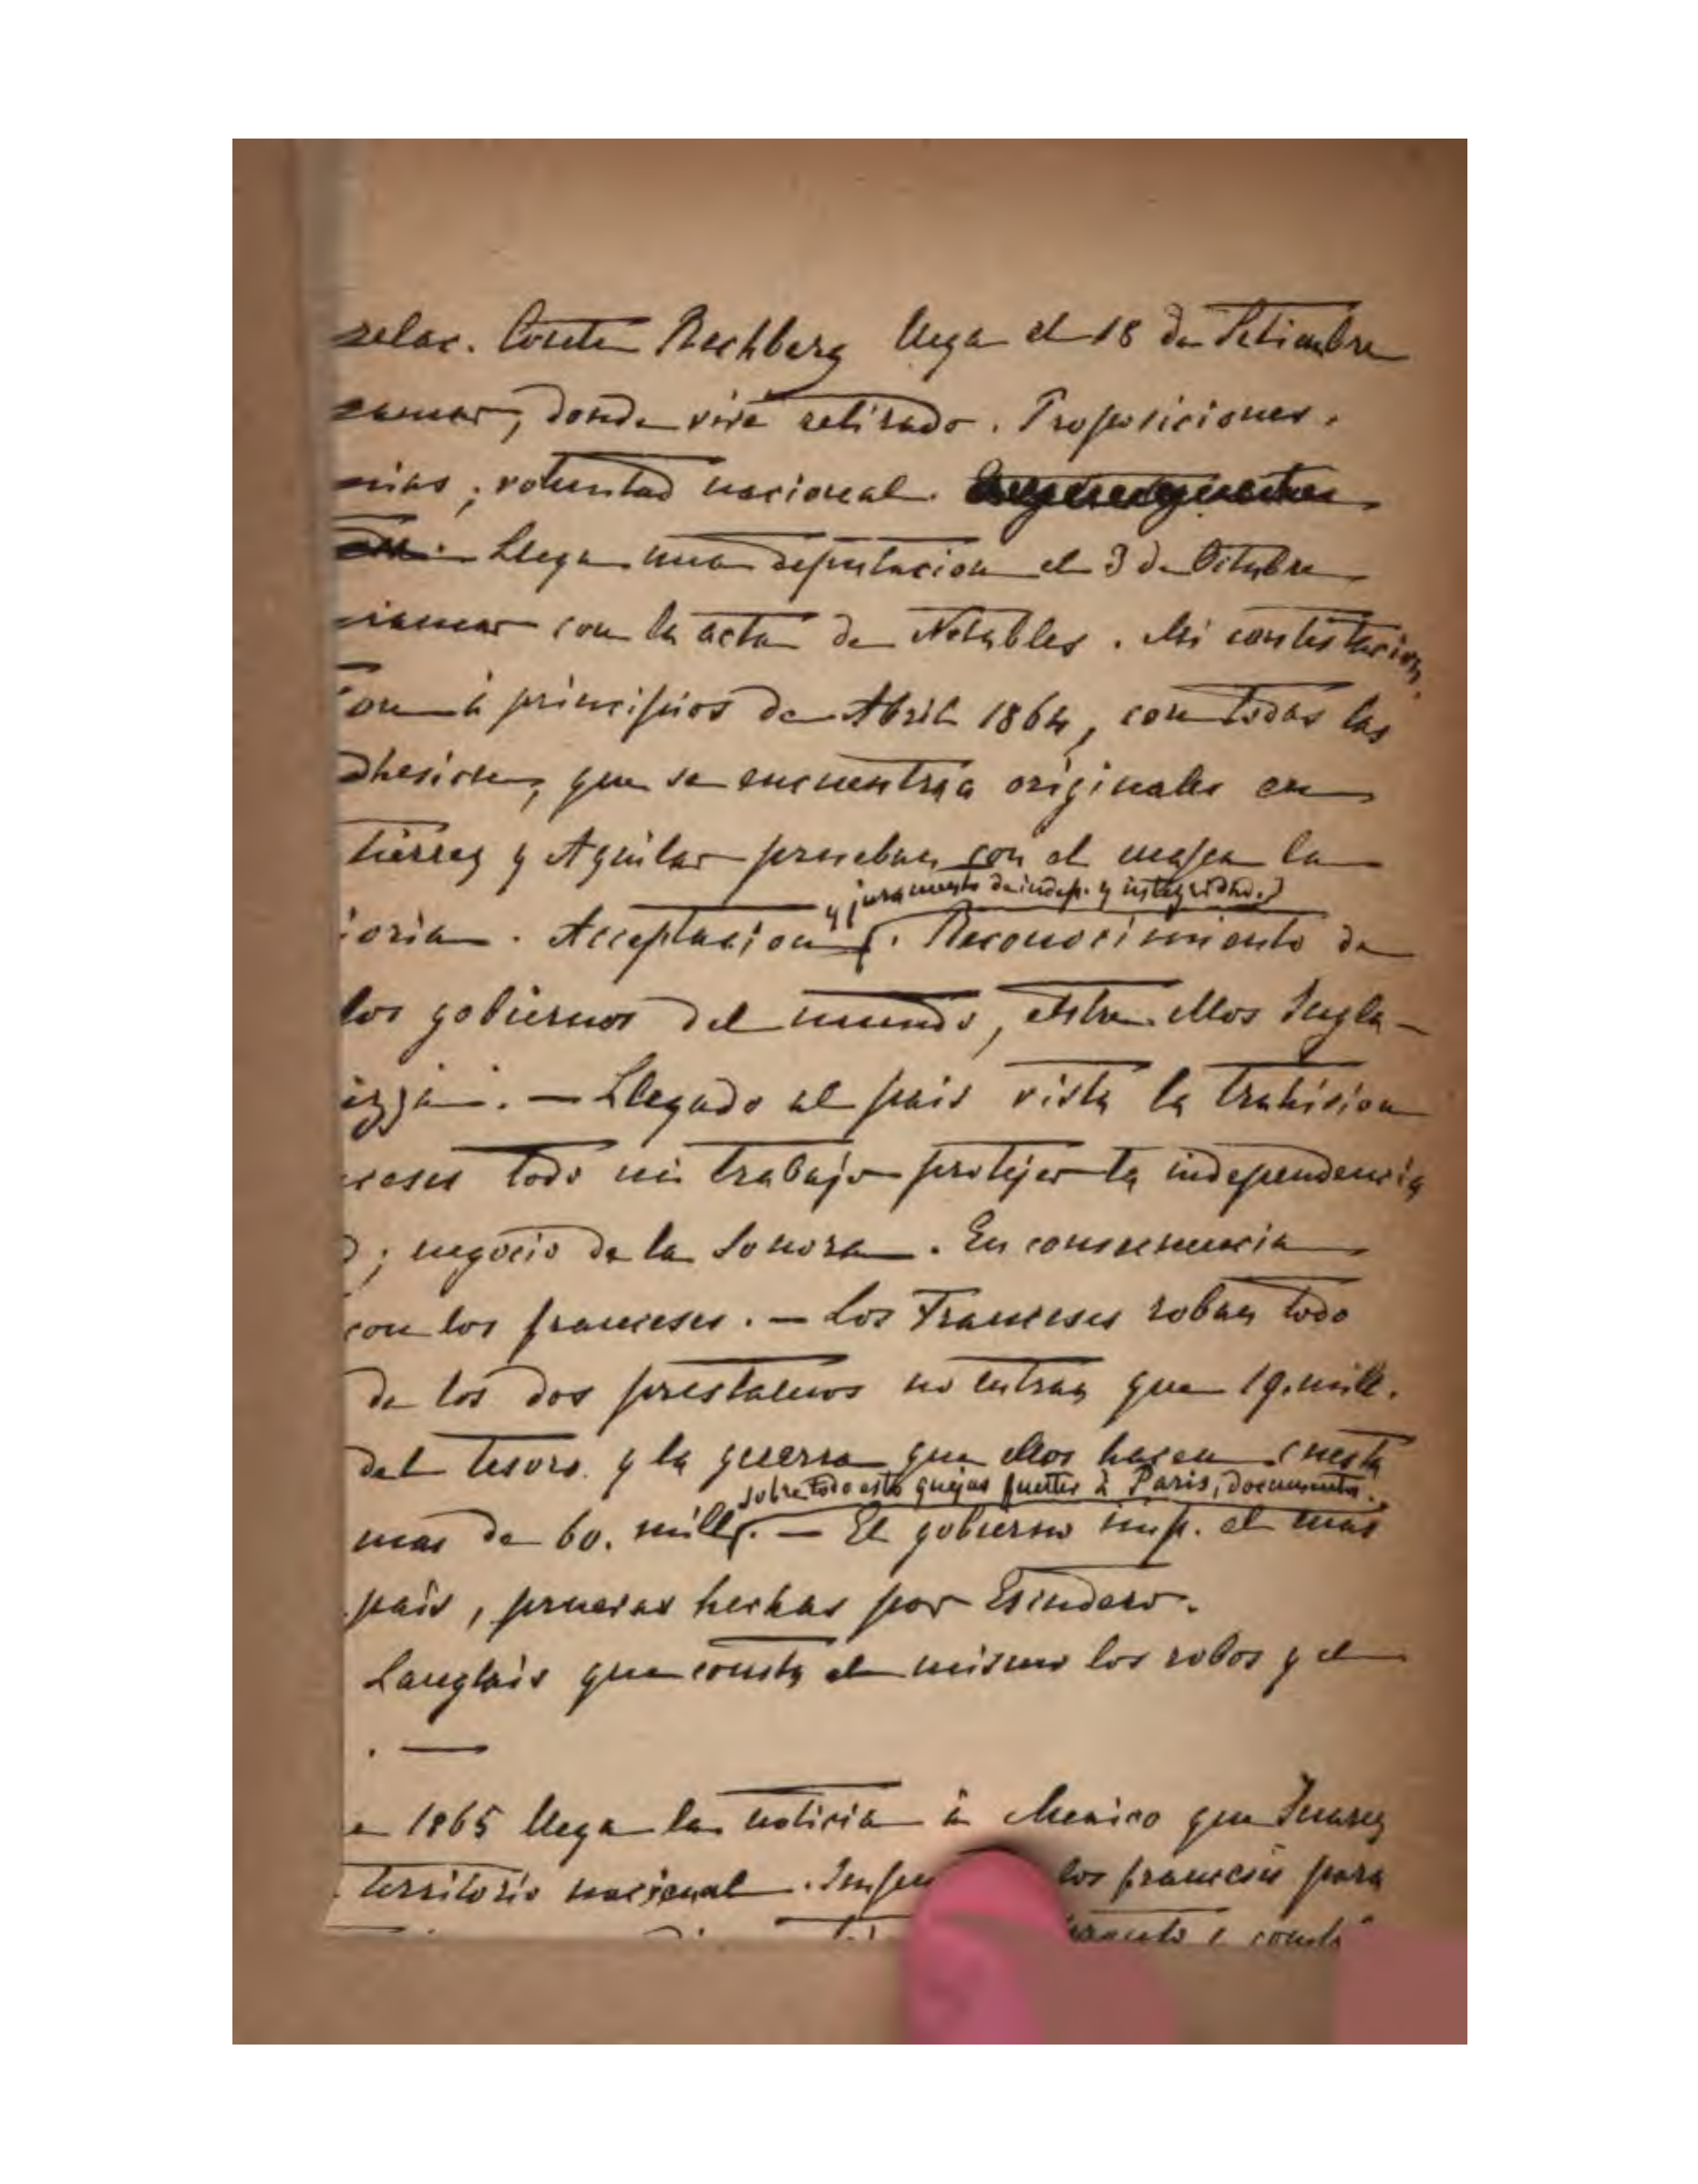 relac. Conte Rechberg llega el 18 de Setiembre
ramar, donde vive retirado. Proposiciones.
nias; voluntad nacional.
Llega una deputacion el 3 de Octubre
riamar con la acta de Notables. Mi contestacion.
on à principios de Abril 1864, con todas las
dhesion, que se encuentra originales en
tierrez y Aguilar prueban con el mapa la
y juramento de indep. y integridad.
ioria. Acceptacion. Reconocimiento de
los gobiernos del mundo, entre ellos Ingla-
izza. — Llegado al pais vista la trahision
ceses todo mi trabajo protejer la independencia
d; negocio de la Sonora. En consecuencia
con los franceses. — Los Franceses roban todo
de los dos prestamos no entran que 19. mill.
del tesoro y la guerra que ellos hacen cuesta
sobre todo esto quejas fuertes à Paris, documento.
mas de 60. mill. — El gobierno imp. el mas
pais, hechas por Escudero.
Langlais que consta el mismo los robos y el
. —
e 1865 llega la noticia à Mexico que Juarez
territorio nacional. los franceses para